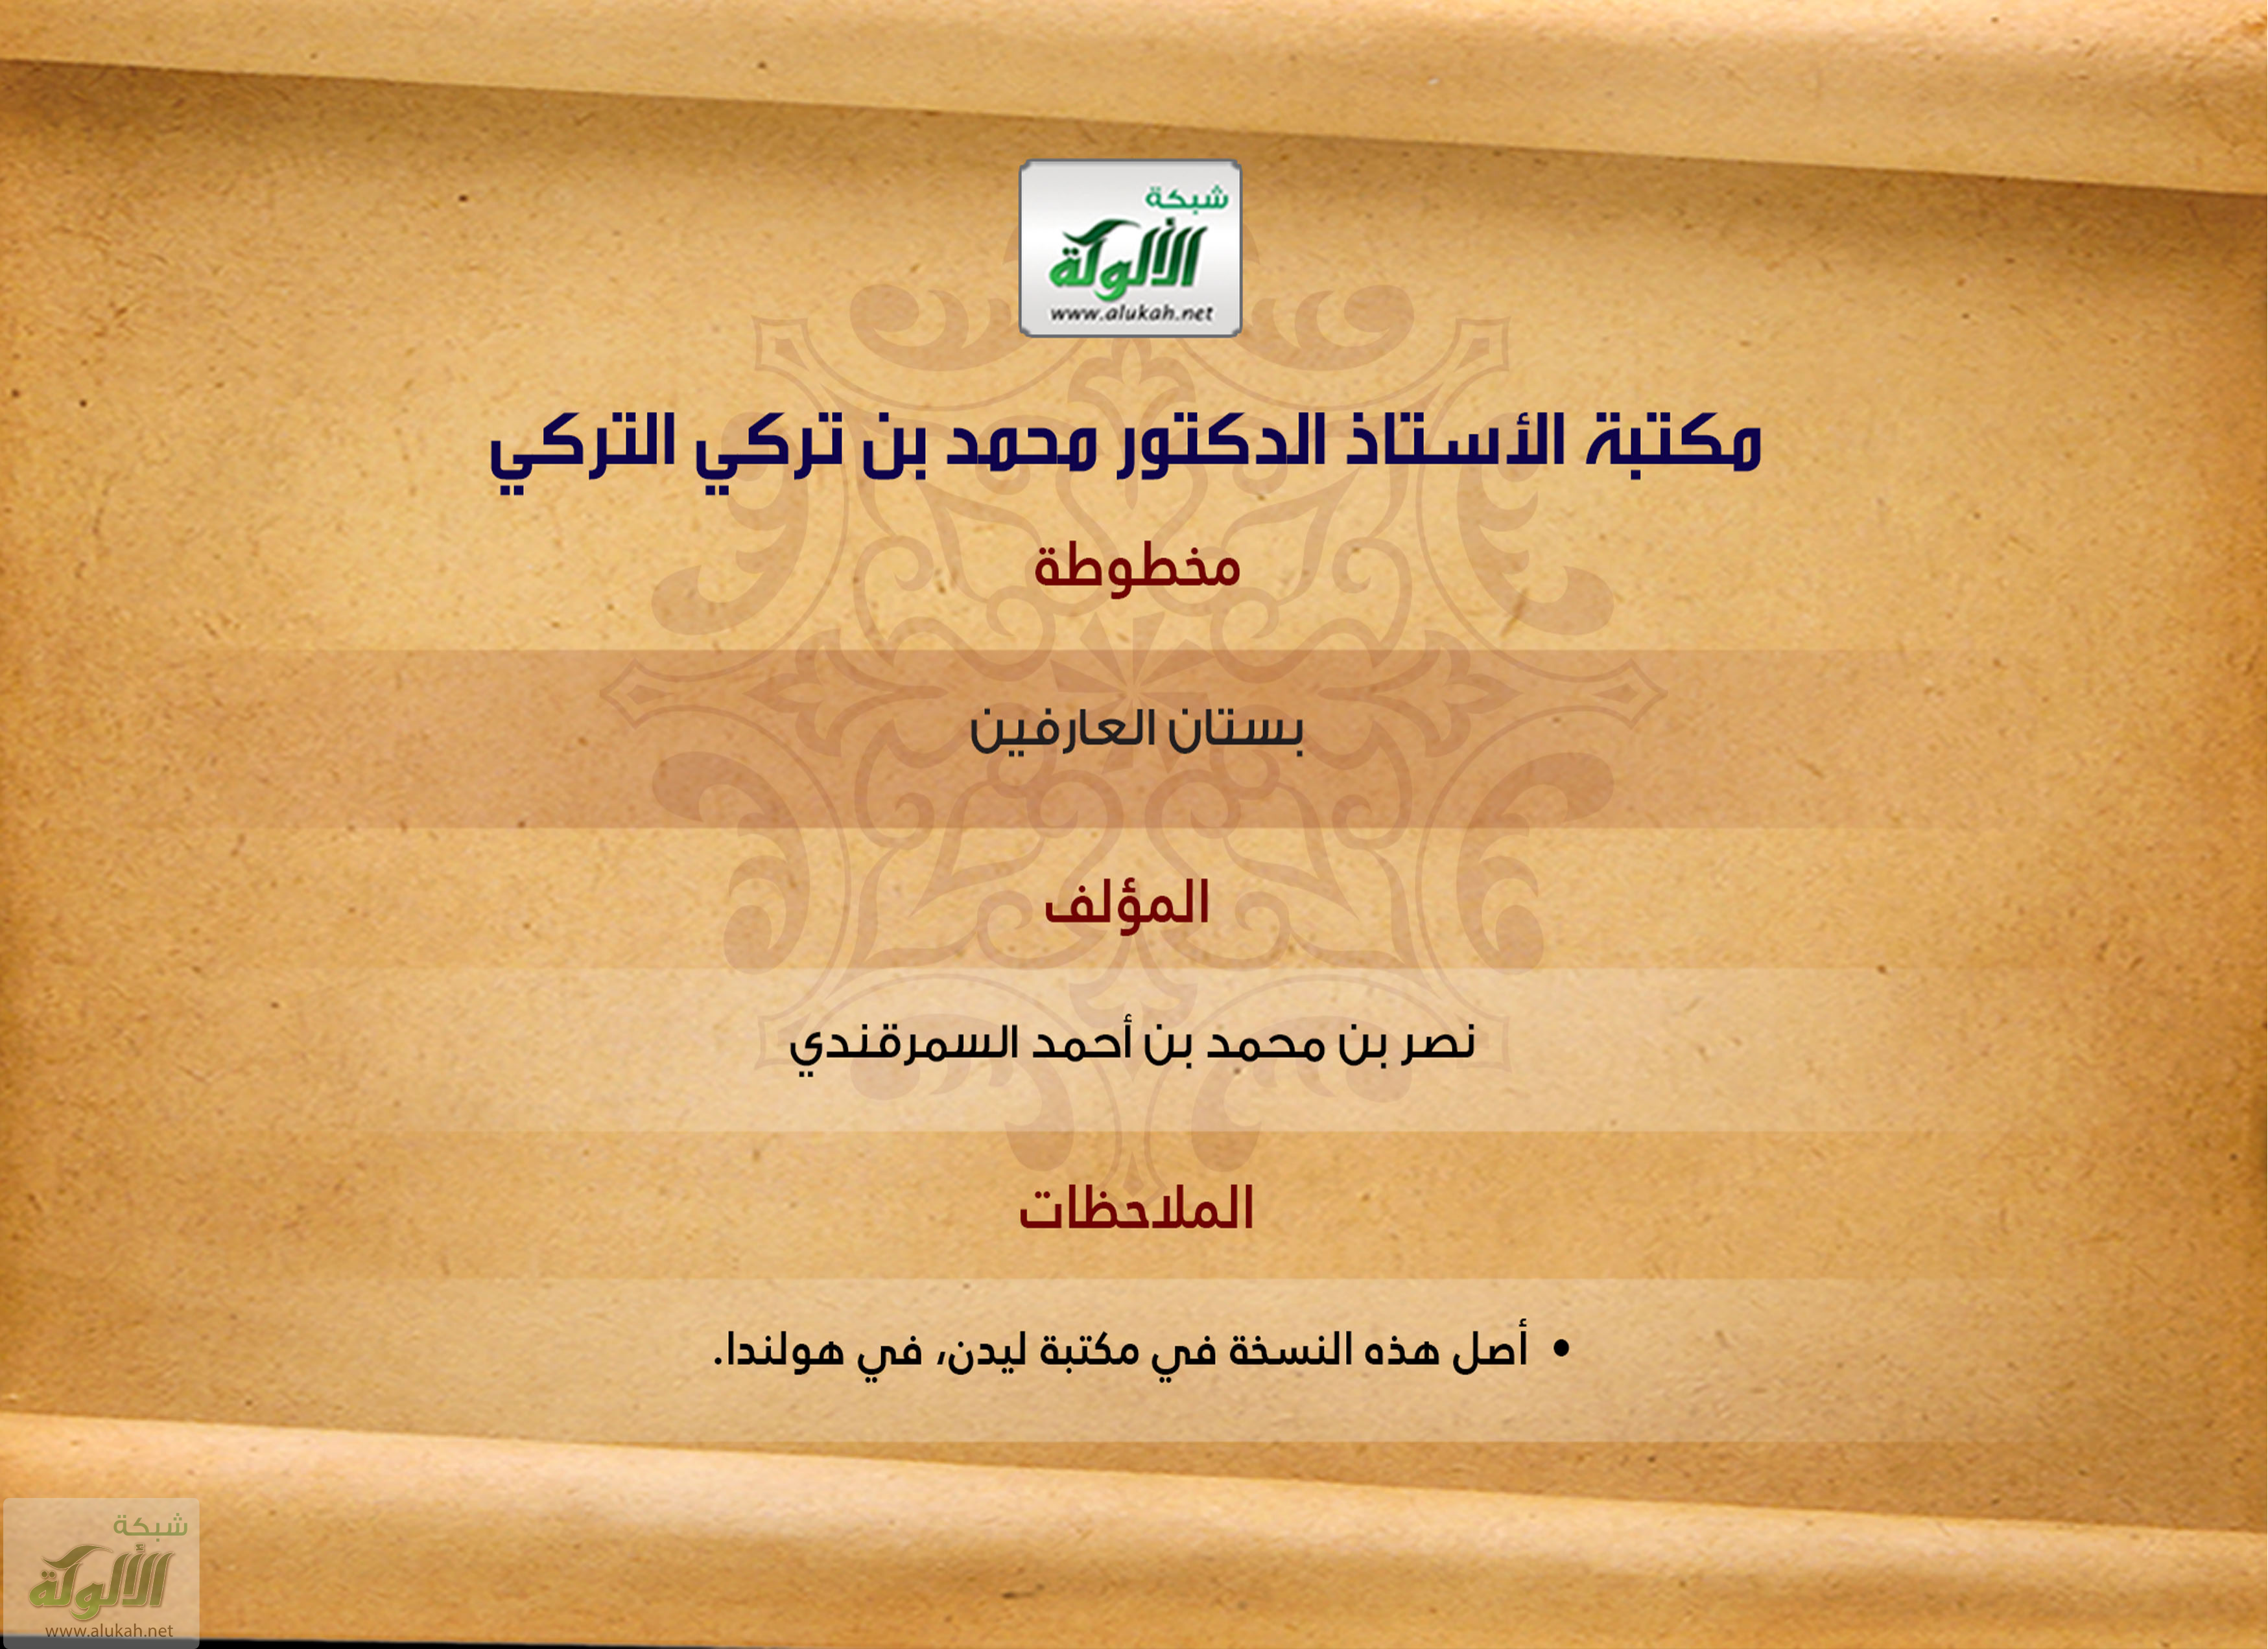 شبكة
الألوكة
www.alukah.net
مكتبة الأستاذ الدكتور محمد بن تركي التركي
مخطوطة
بستان العارفين
المؤلف
نصر بن محمد بن أحمد السمرقندي
الملاحظات
• أصل هذه النسخة في مكتبة ليدن، في هولندا.
شبكة
الألوكة
www.alukah.net